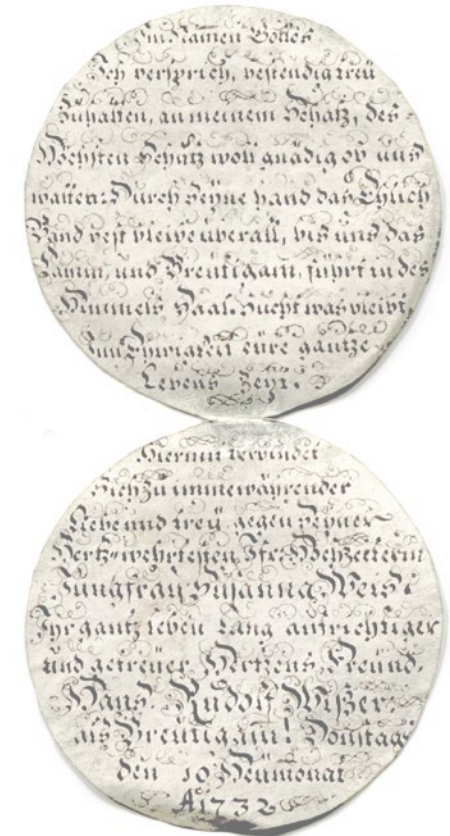 Im Namen Gottes
Ich versprich, bestendig treü
Zuhalten, an meinem Schatz, des-
Höchsten Schutz woll gnädig ob uns
walten: Durch seyne hand das Ehlich
Band vest bleibe uberall, bis uns das
Lamm, und Breutigam, führt in des
Himmels Saal. Sucht was bleibt,
Zum Ewigkeit eüre gantze
Lebens Zeyt.
Hiermit verbindet
Sich Zu immewährender
Liebe und treü gegen seyner
Hertz-wehrtesten Jfr: Hochzeiterin
Jungfrau Susanna Weis:
Ihr gantz leben Lang aufrichtiger
und getreüer Hertzens Freünd.
Hans Rudolf Wißer
als Breutigam! Donstag
den 10 Heümonat
A 1732